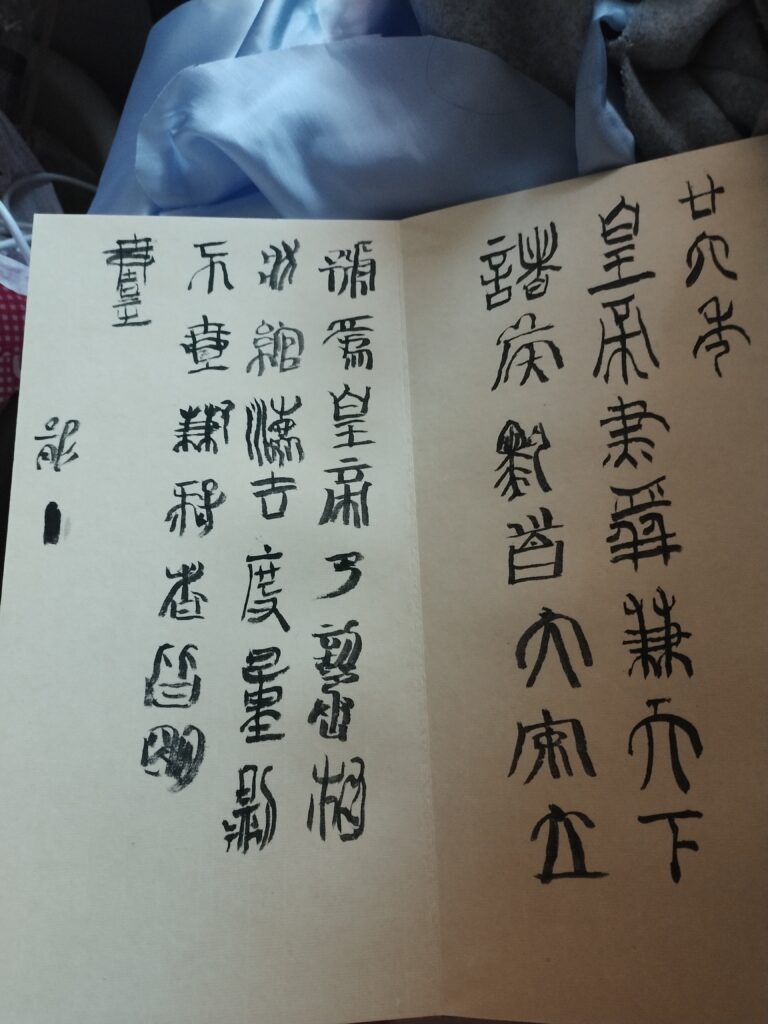 廿六年
皇帝盡并兼天下
諸侯黔首大安立
號為皇帝乃詔丞相
狀綰灋度量則
不壹歉疑者皆明
壹